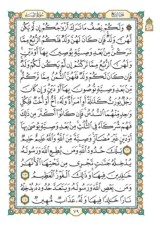 ۞ وَلَكُمْ نِصْفُ مَا تَرَكَ أَزْوَٰجُكُمْ إِن لَّمْ يَكُن
لَّهُنَّ وَلَدٌ فَإِن كَانَ لَهُنَّ وَلَدٌ فَلَكُمُ ٱلرُّبُعُ مِمَّا
تَرَكْنَ مِنۢ بَعْدِ وَصِيَّةٍ يُوصِينَ بِهَآ أَوْ دَيْنٍ
وَلَهُنَّ ٱلرُّبُعُ مِمَّا تَرَكْتُمْ إِن لَّمْ يَكُن لَّكُمْ وَلَدٌ
فَإِن كَانَ لَكُمْ وَلَدٌ فَلَهُنَّ ٱلثُّمُنُ مِمَّا تَرَكْتُم
مِّنۢ بَعْدِ وَصِيَّةٍ تُوصُونَ بِهَآ أَوْ دَيْنٍ وَإِن كَانَ
رَجُلٌ يُورَثُ كَلَٰلَةً أَوِ ٱمْرَأَةٌ وَلَهُۥٓ أَخٌ أَوْ أُخْتٌ فَلِكُلِّ
وَٰحِدٍ مِّنْهُمَا ٱلسُّدُسُ فَإِن كَانُوٓا۟ أَكْثَرَ مِن ذَٰلِكَ
فَهُمْ شُرَكَآءُ فِى ٱلثُّلُثِ مِنۢ بَعْدِ وَصِيَّةٍ يُوصَىٰ بِهَآ
أَوْ دَيْنٍ غَيْرَ مُضَآرٍّ وَصِيَّةً مِّنَ ٱللَّهِ وَٱللَّهُ عَلِيمٌ حَلِيمٌ
تِلْكَ حُدُودُ ٱللَّهِ وَمَن يُطِعِ ٱللَّهَ وَرَسُولَهُۥ
يُدْخِلْهُ جَنَّٰتٍ تَجْرِى مِن تَحْتِهَا ٱلْأَنْهَٰرُ
خَٰلِدِينَ فِيهَا وَذَٰلِكَ ٱلْفَوْزُ ٱلْعَظِيمُ
وَمَن يَعْصِ ٱللَّهَ وَرَسُولَهُۥ وَيَتَعَدَّ حُدُودَهُۥ يُدْخِلْهُ
نَارًا خَٰلِدًا فِيهَا وَلَهُۥ عَذَابٌ مُّهِينٌ
٧٩